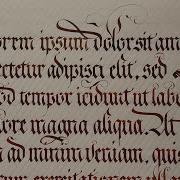 orem ipsum dolor sit am
ectetur adipisci elit, sed
od tempor incidunt ut labo
ore magna aliqua. Ut
m ad minim veniam, quis